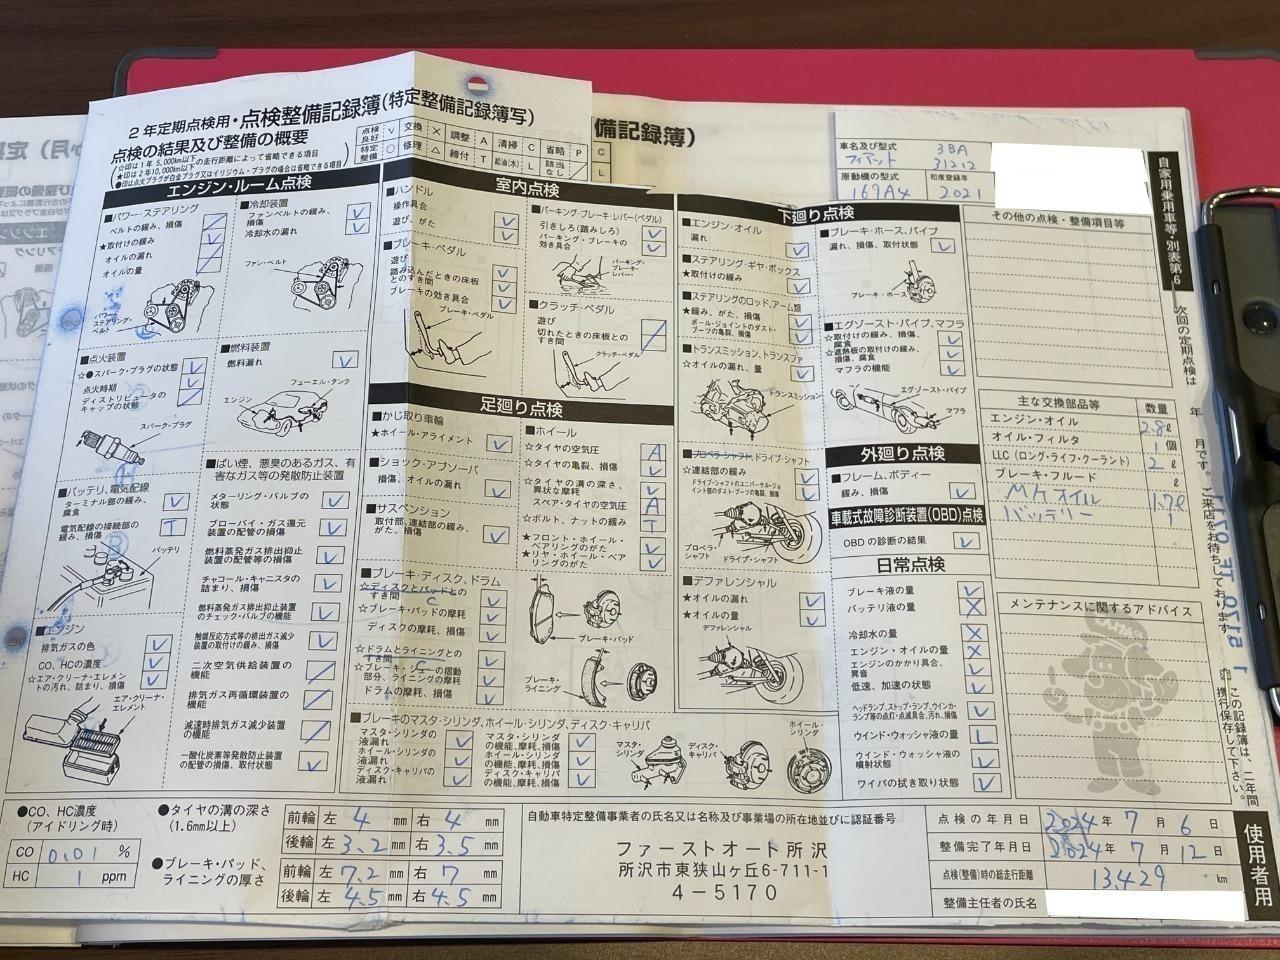 2年定期点検用・点検整備記録簿(特定整備記録簿写)
備記録簿)
点検の結果及び整備の概要
☆印は1年5,000km以下の走行距離によって省略できる項目
★印は2年10,000km以下の走行距離によって省略できる項目
●印は点火プラグが白金プラグ又はイリジウム・プラグの場合は省略できる項目
点検良好 V 交換 X 調整 A 清掃 C 省略 P
特定整備 ○ 修理 △ 締付 T 給油(水) L 該当なし /
車名及び型式 フィアット 3BA 31212
原動機の型式 169A4 初度登録年 2021
自家用乗用車等・別表第6
エンジン・ルーム点検
■パワー・ステアリング
ベルトの緩み、損傷
★取付けの緩み V
オイルの漏れ
オイルの量
パワー・ステアリング・ベルト
■冷却装置
ファンベルトの緩み、損傷 V
冷却水の漏れ V
ファン・ベルト
■点火装置
☆●スパーク・プラグの状態 V
点火時期 V
ディストリビュータのキャップの状態 /
スパーク・プラグ
■燃料装置
燃料漏れ V
フューエル・タンク
エンジン
■バッテリ、電気配線
ターミナル部の緩み、腐食 V
電気配線の接続部の緩み、損傷 T
バッテリ
■ばい煙、悪臭のあるガス、有害なガス等の発散防止装置
メターリング・バルブの状態 V
ブローバイ・ガス還元装置の配管の損傷 V
燃料蒸発ガス排出抑止装置の配管等の損傷 V
チャコール・キャニスタの詰まり、損傷 V
燃料蒸発ガス排出抑止装置のチェック・バルブの機能 V
触媒反応方式等の排出ガス減少装置の取付けの緩み、損傷 V
二次空気供給装置の機能 /
排気ガス再循環装置の機能 /
減速時排気ガス減少装置の機能 /
一酸化炭素等発散防止装置の配管の損傷、取付状態 V
■エンジン
排気ガスの色 V
CO、HCの濃度 V
☆エア・クリーナ・エレメントの汚れ、詰まり、損傷 V
エア・クリーナ・エレメント
室内点検
■ハンドル
操作具合 V
遊び、がた V
■ブレーキ・ペダル
遊び V
踏み込んだときの床板とのすき間 V
ブレーキの効き具合 V
ブレーキ・ペダル
■パーキング・ブレーキ・レバー(ペダル)
引きしろ(踏みしろ) V
パーキング・ブレーキの効き具合 V
パーキング・ブレーキ・レバー
■クラッチ・ペダル
遊び
切れたときの床板とのすき間 /
クラッチ・ペダル
足廻り点検
■かじ取り車輪
★ホイール・アライメント V
■ショック・アブソーバ
損傷、オイルの漏れ V
■サスペンション
取付部、連結部の緩み、がた、損傷 V
■ホイール
☆タイヤの空気圧 A
☆タイヤの亀裂、損傷 V
☆タイヤの溝の深さ、異状な摩耗 V
スペア・タイヤの空気圧 A
☆ボルト、ナットの緩み T
★フロント・ホイール・ベアリングのがた V
★リヤ・ホイール・ベアリングのがた V
■ブレーキ・ディスク、ドラム
☆ディスクとパッドとのすき間 V
C
☆ブレーキ・パッドの摩耗 V
ディスクの摩耗、損傷 V
☆ドラムとライニングとのすき間 V
C
☆ブレーキ・シューの摺動部分、ライニングの摩耗 V
ドラムの摩耗、損傷 V
ブレーキ・パッド
ブレーキ・ライニング
■ブレーキのマスタ・シリンダ、ホイール・シリンダ、ディスク・キャリパ
マスタ・シリンダの液漏れ V
ホイール・シリンダの液漏れ V
ディスク・キャリパの液漏れ V
マスタ・シリンダの機能、摩耗、損傷 V
ホイール・シリンダの機能、摩耗、損傷 V
ディスク・キャリパの機能、摩耗、損傷 V
マスタ・シリンダ
ディスク・キャリパ
ホイール・シリンダ
下廻り点検
■エンジン・オイル
漏れ V
■ステアリング・ギヤ・ボックス
★取付けの緩み V
■ステアリングのロッド、アーム類
★緩み、がた、損傷 V
ボール・ジョイントのダスト・ブーツの亀裂、損傷 V
■トランスミッション、トランスファ
☆オイルの漏れ、量 V
トランスミッション
■プロペラ・シャフト、ドライブ・シャフト
☆連結部の緩み V
ドライブ・シャフトのユニバーサル・ジョイント部のダスト・ブーツの亀裂、損傷 V
プロペラ・シャフト
ドライブ・シャフト
■デファレンシャル
☆オイルの漏れ V
★オイルの量 V
デファレンシャル
■ブレーキ・ホース、パイプ
漏れ、損傷、取付状態 V
ブレーキ・ホース
■エグゾースト・パイプ、マフラ
☆取付けの緩み、損傷、腐食 V
☆遮熱板の取付けの緩み、損傷、腐食 V
マフラの機能 V
エグゾースト・パイプ
マフラ
外廻り点検
■フレーム、ボディー
緩み、損傷 V
車載式故障診断装置(OBD)点検
OBDの診断の結果 V
日常点検
ブレーキ液の量 V
バッテリ液の量 X
冷却水の量 X
エンジン・オイルの量 X
エンジンのかかり具合、異音 V
低速、加速の状態 V
ヘッドランプ、ストップ・ランプ、ウインカ・ランプ等の点灯・点滅具合、汚れ、損傷 V
ウインド・ウォッシャ液の量 L
ウインド・ウォッシャ液の噴射状態 V
ワイパの拭き取り状態 V
その他の点検・整備項目等
主な交換部品等 数量
エンジン・オイル 2.8ℓ
オイル・フィルタ 1個
LLC(ロング・ライフ・クーラント) 2ℓ
ブレーキ・フルード ℓ
MTオイル 1.7ℓ
バッテリー 1
メンテナンスに関するアドバイス
次回の定期点検は 年 月です。ご来店をお待ちしております
この記録簿は、二年間携行保存して下さい。
●CO、HC濃度(アイドリング時)
CO 0.01 %
HC 1 ppm
●タイヤの溝の深さ(1.6mm以上)
前輪 左 4 mm 右 4 mm
後輪 左 3.2 mm 右 3.5 mm
●ブレーキ・パッド、ライニングの厚さ
前輪 左 7.2 mm 右 7 mm
後輪 左 4.5 mm 右 4.5 mm
自動車特定整備事業者の氏名又は名称及び事業場の所在地並びに認証番号
ファーストオート所沢
所沢市東狭山ヶ丘6-711-1
4-5170
点検の年月日 2024年7月6日
整備完了年月日 2024年7月12日
点検(整備)時の総走行距離 13,429 km
整備主任者の氏名
使用者用